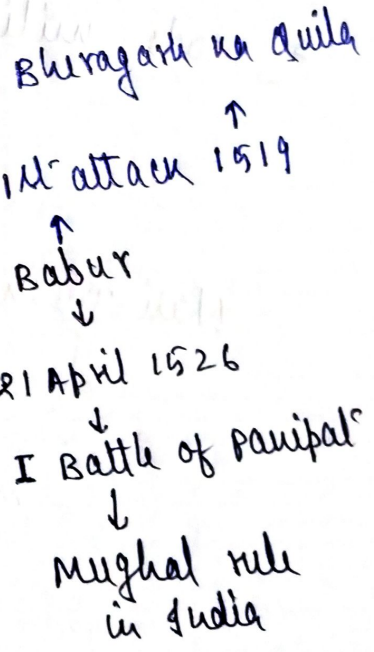 Bheragarh ka Quila
↑
1st attack 1519
↑
Babur
↓
21 April 1526
↓
I Battle of Panipat
↓
Mughal rule
in India